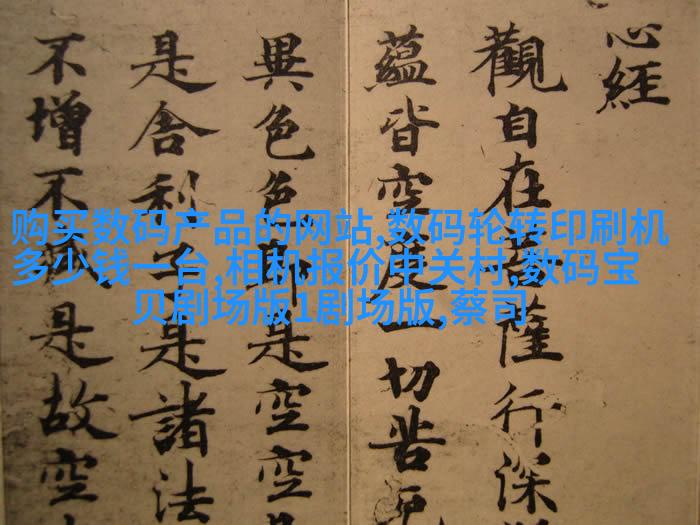 购买数码产品的网站,数码轮转印刷机
多少钱一台,相机报价中关村,数码宝
贝剧场版1剧场版,蔡司
心經
觀自在菩薩行深
蘊皆空度一切苦厄
異色色即是空空
是舍利子是諸法
不增不減是故空